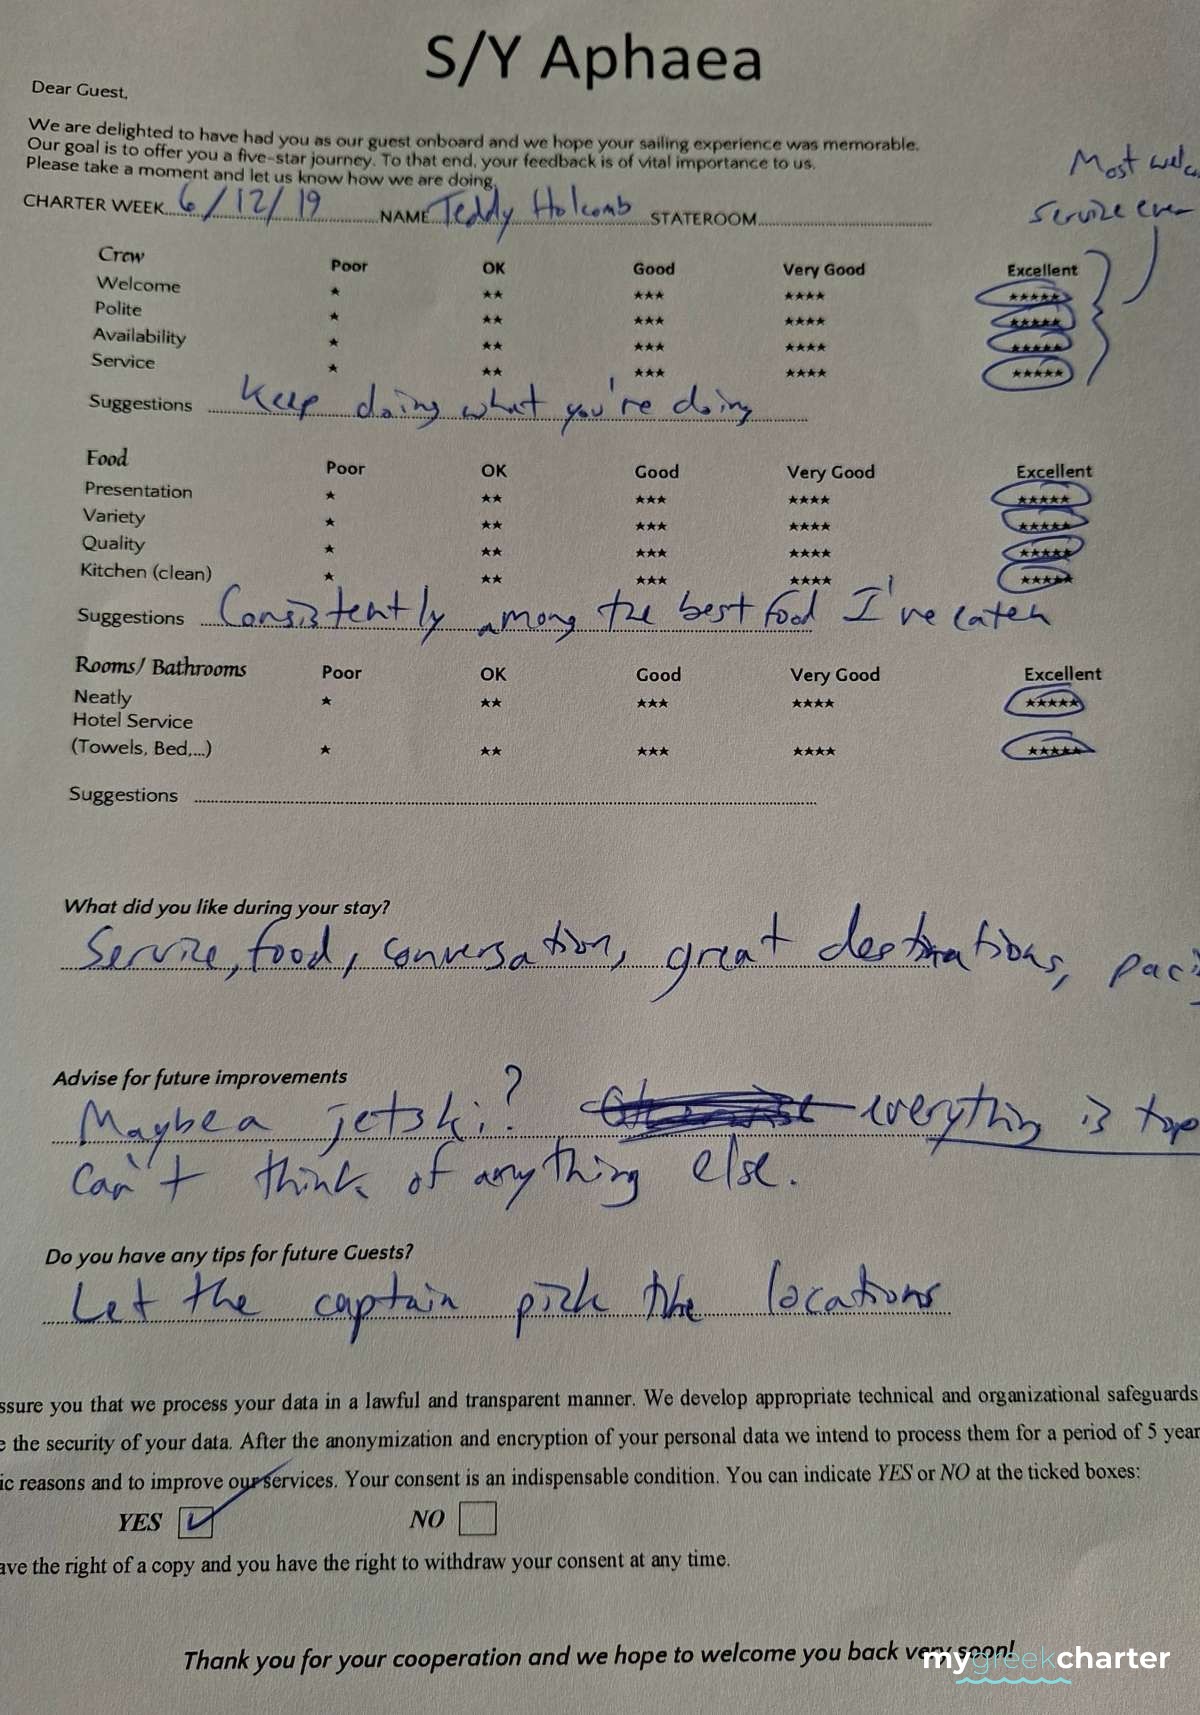 S/Y Aphaea
Dear Guest,
We are delighted to have had you as our guest onboard and we hope your sailing experience was memorable.
Our goal is to offer you a five-star journey. To that end, your feedback is of vital importance to us.
Please take a moment and let us know how we are doing.
Most welco
service ever
CHARTER WEEK 6/12/19 NAME Teddy Holcomb STATEROOM
Crew Poor OK Good Very Good Excellent
Welcome ★ ★★ ★★★ ★★★★ ★★★★★
Polite ★ ★★ ★★★ ★★★★ ★★★★★
Availability ★ ★★ ★★★ ★★★★ ★★★★★
Service ★ ★★ ★★★ ★★★★ ★★★★★
Suggestions Keep doing what you're doing
Food Poor OK Good Very Good Excellent
Presentation ★ ★★ ★★★ ★★★★ ★★★★★
Variety ★ ★★ ★★★ ★★★★ ★★★★★
Quality ★ ★★ ★★★ ★★★★ ★★★★★
Kitchen (clean) ★ ★★ ★★★ ★★★★ ★★★★★
Suggestions Consistently among the best food I've eaten
Rooms/ Bathrooms Poor OK Good Very Good Excellent
Neatly ★ ★★ ★★★ ★★★★ ★★★★★
Hotel Service
(Towels, Bed,...) ★ ★★ ★★★ ★★★★ ★★★★★
Suggestions
What did you like during your stay?
Service, food, conversation, great destinations,
Advise for future improvements
Maybe a jetski? everything is top
can't think of anything else.
Do you have any tips for future Guests?
Let the captain pick the locations
ssure you that we process your data in a lawful and transparent manner. We develop appropriate technical and organizational safeguards
e the security of your data. After the anonymization and encryption of your personal data we intend to process them for a period of 5 year
ic reasons and to improve our services. Your consent is an indispensable condition. You can indicate YES or NO at the ticked boxes:
YES NO
ave the right of a copy and you have the right to withdraw your consent at any time.
Thank you for your cooperation and we hope to welcome you back very soon!
mygreekcharter